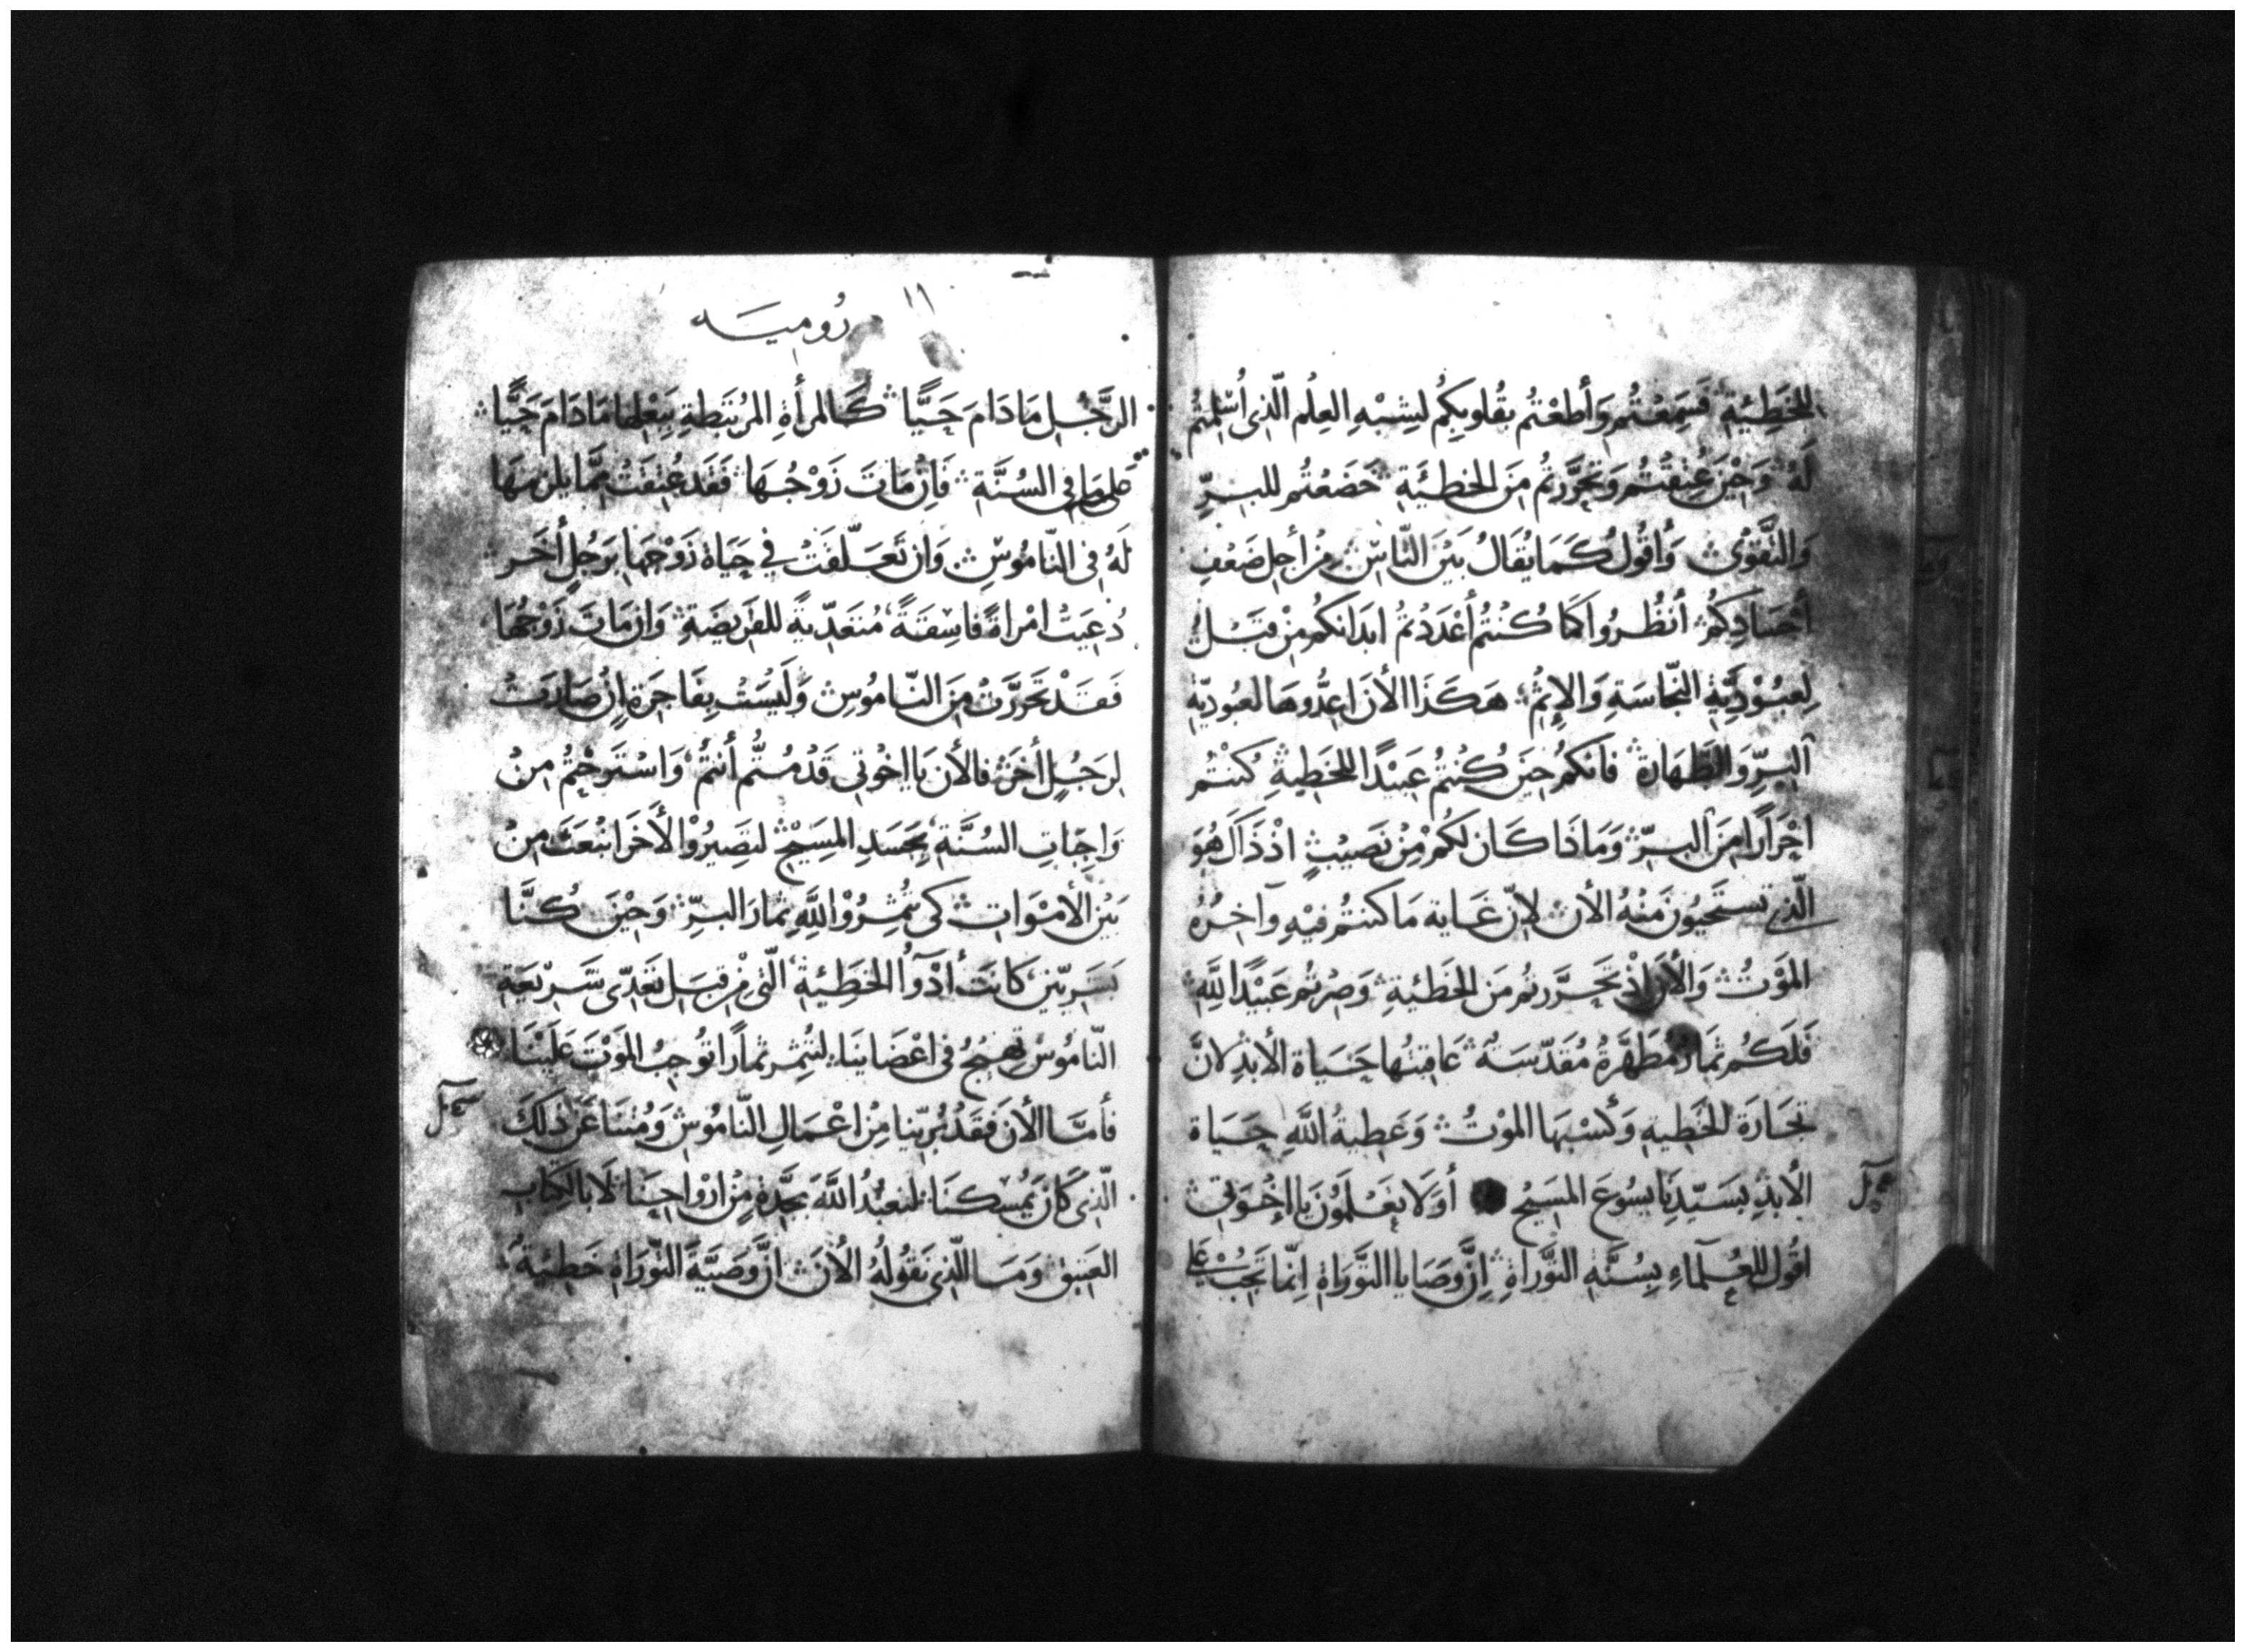 للخَطِيَّةِ فَسَمِعْتُم وَأطَعْتُم بقُلوبِكُم لِشِبْهِ العِلْمِ الّذِى أُسْلِمتُمْ
لَهُ وَحِيْنَ عُتِقْتُم وَتحَرَّرتُم مِنَ الخطِيَّةِ خَضَعْتُم للبِرِّ
وَالتَّقْوَى وَاقُولُ كَمَا يُقَالُ بَيْنَ النَّاسِ مِنْ أجلِ ضَعْفِ
أجْسَادِكُمْ أنظُرُوا كَمَا كُنْتُمْ أعْدَدْتُمُ ابدَانكُم مِنْ قَبْل
لِعبُوْدِيَّةِ النّجَاسَةِ وَالإثمْ هَكَذَا الأنَ اعِدُّوهَا لعبُوديّةِ
البِرِّ وَالطَّهَارَةِ فانّكم حِيَن كُنْتُمُ عَبِيْدًا للخَطِيةِ كُنتُم
احْرَارًا مِنَ البِرِّ وَمَاذَا كَان لكُم مِنْ نَصِيْبٍ اذ ذَاكَ هُوَ
الّذِي تستَحْيُونَ مِنْهُ الأنَ لانّ غَايةَ مَا كنتُم فيْهِ وآخِرُهُ
المَوْتُ وَالأنَ اذْ تحَرَّرتُم مِنَ الخَطِيَةِ وَصِرْتُم عَبِيْدًا للَّهِ
فَلَكُم ثمَارٌ مُطَهَّرةٌ مُقَدّسَةٌ عَاقِبَتُها حَيَاة الأبَدِ لانَّ
تجَارَةَ الخَطِيةِ وَكُسْبَهَا المَوْتُ وَعَطِيةُ اللَّهِ حَيَاة
الأبَدِ بسَيّدِنَا يسُوعَ المسَيْحِ أوَلَا يَعْلَمُوْنَ يا إخْوَتِي
اقُول للعُلمآءِ بِسُنَّةِ التّوْرَاةِ إنَّ وَصَايا التّوَرَاةِ إنّما تَجِبُ عَلى
١١
رُومِيَه
الرَّجُلِ مَا دَامَ حَيًّا كَالمرأَةِ المُرتَبَطةِ بِبَعْلِهَا مَا دَامَ حَيًّا
عَلى مَا فِي السُنَّةِ فَإنْ مَاتَ زَوْجُهَا فَقَد عُتِقَتْ ممَّا يلزمهَا
لَهُ فِى النّامُوسِ وَان تَعَلّقَتْ فِي حَيَاة زَوْجهَا بِرَجُلٍ أخَر
دُعِيَتْ امْرَاةً فاسِقَةً مُتَعَدّيَةً للفَرِيضَةِ وَان مَاتَ زَوْجُهَا
فَقَدْ تَحَرَّرَتْ مِنَ النّامُوسِ وَلَيْسَتْ بِفَاجِرَةٍ إنْ صَارَتْ
لِرَجُلٍ أخَرَ فالأنَ يَا اخْوتِي قَدْ مُتُّم أنتُمْ وَاسْتَرَحْتُمْ مِنْ
وَاجِبَاتِ السُنَّةِ بِجَسَدِ المَسِيْحِ لتَصِيرُوْا لأخَرَ انْبَعَثَ مِنْ
بَيْنِ الأمْوَاتِ كى تُثمِرُوْا للَّهِ ثِمَارَ البِرِّ وَحِيْنَ كُنَّا
بَشَرِيّينَ كَانَتْ أدْوَآُ الخَطِيَّةِ الّتِى مِنْ قِبَلِ تَعَدِّى شَرِيْعَةِ
النّامُوْسِ تهِيْجُ فى اعْضَائِنَا لتُثمِر ثمارًا تُوجِبُ الموْتَ عَلَيْنَا
فأمَّا الأنَ فَقَدْ بُرّينا مِنْ اعْمَالِ النّامُوسِ وَمُتنَا عَنْ ذَلكَ
الّذِى كَانَ يمُسِكنَا لنعبُدَ اللَّهَ بِجدَّةِ مِنْ ارْوَاحِنَا لَا بالكِتَابِ
العَتِيقِ وَمَا الّذِى نَقُولُهُ الأنَ انَّ وَصِيَّةَ التّوْرَاةِ خَطِيَةٌ